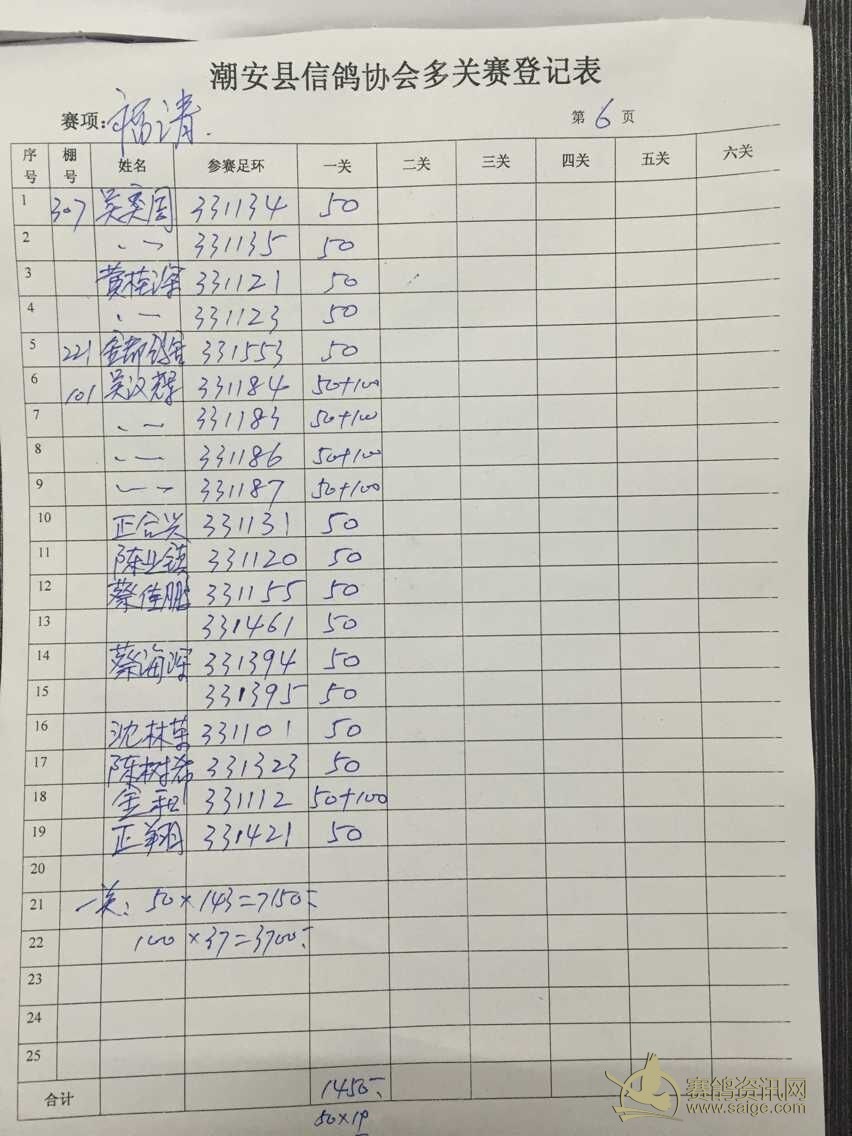 潮安县信鸽协会多关赛登记表
赛项: 福清. 第 6 页
序号 棚号 姓名 参赛足环 一关 二关 三关 四关 五关 六关
1 307 吴奕周 331134 50
2 〃 331135 50
3 黄桂深 331121 50
4 〃 331123 50
5 221 331553 50
6 101 吴汉辉 331184 50+100
7 〃 331183 50+100
8 〃 331186 50+100
9 〃 331187 50+100
10 正合兴 331131 50
11 陈业镇 331120 50
12 蔡佳鹏 331155 50
13 331461 50
14 蔡海深 331394 50
15 331395 50
16 沈林荣 331101 50
17 陈树希 331323 50
18 金和 331112 50+100
19 正翔 331421 50
20
21 一关: 50×143=7150-
22 100×37=3700-
23
24
25
合计 1450-
50×19
赛鸽资讯网
www.saige.com